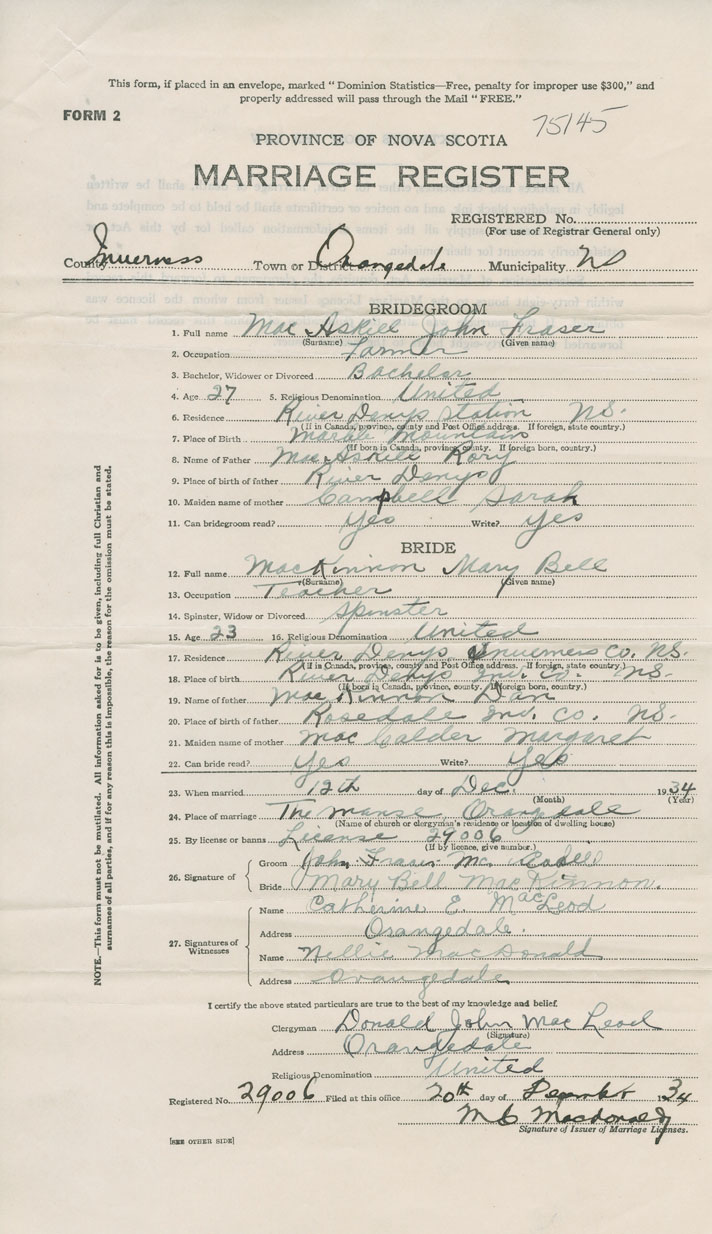 This form, if placed in an envelope, marked "Dominion Statistics—Free, penalty for improper use $300," and
properly addressed will pass through the Mail "FREE."
FORM 2
75145
PROVINCE OF NOVA SCOTIA
MARRIAGE REGISTER
REGISTERED No.
(For use of Registrar General only)
County Inverness Town or District Orangedale Municipality NS
BRIDEGROOM
1. Full name Mac Askill John Fraser
(Surname) (Given name)
2. Occupation Farmer
3. Bachelor, Widower or Divorced Bachelor
4. Age 27 5. Religious Denomination United
6. Residence River Denys Station NS.
(If in Canada, province, county and Post Office address. If foreign, state country.)
7. Place of Birth Marble Mountain
(If born in Canada, province, county. If foreign born, country.)
8. Name of Father Mac Askill Rory
9. Place of birth of father River Denys
10. Maiden name of mother Campbell Sarah
11. Can bridegroom read? Yes Write? Yes
BRIDE
12. Full name MacKinnon Mary Bell
(Surname) (Given name)
13. Occupation Teacher
14. Spinster, Widow or Divorced Spinster
15. Age 23 16. Religious Denomination United
17. Residence River Denys Inverness Co. NS.
(If in Canada, province, county and Post Office address. If foreign, state country.)
18. Place of birth River Denys Inv. Co. NS.
(If born in Canada, province, county. If foreign born, country.)
19. Name of father Mac Kinnon Dan
20. Place of birth of father Rosedale Inv. Co. NS.
21. Maiden name of mother Mac Calder Margaret
22. Can bride read? Yes Write? Yes
23. When married 12th day of Dec. 1934
(Month) (Year)
24. Place of marriage The Manse Orangedale
(Name of church or clergyman's residence or location of dwelling house)
25. By license or banns License 29006
(If by licence, give number.)
26. Signature of Groom John Fraser Mc
Bride Mary Bell MacKinnon.
27. Signatures of Witnesses Name Catherine E. MacLeod
Address Orangedale.
Name Nellie MacDonald
Address Orangedale
I certify the above stated particulars are true to the best of my knowledge and belief.
Clergyman Donald John Mac Leod
(Signature)
Address Orangedale
Religious Denomination United
Registered No. 29006 Filed at this office 20th day of December 1934
M C Macdonald
Signature of Issuer of Marriage Licenses.
[SEE OTHER SIDE]
NOTE.—This form must not be mutilated. All information asked for is to be given, including full Christian and
surnames of all parties, and if for any reason this is impossible, the reason for the omission must be stated.